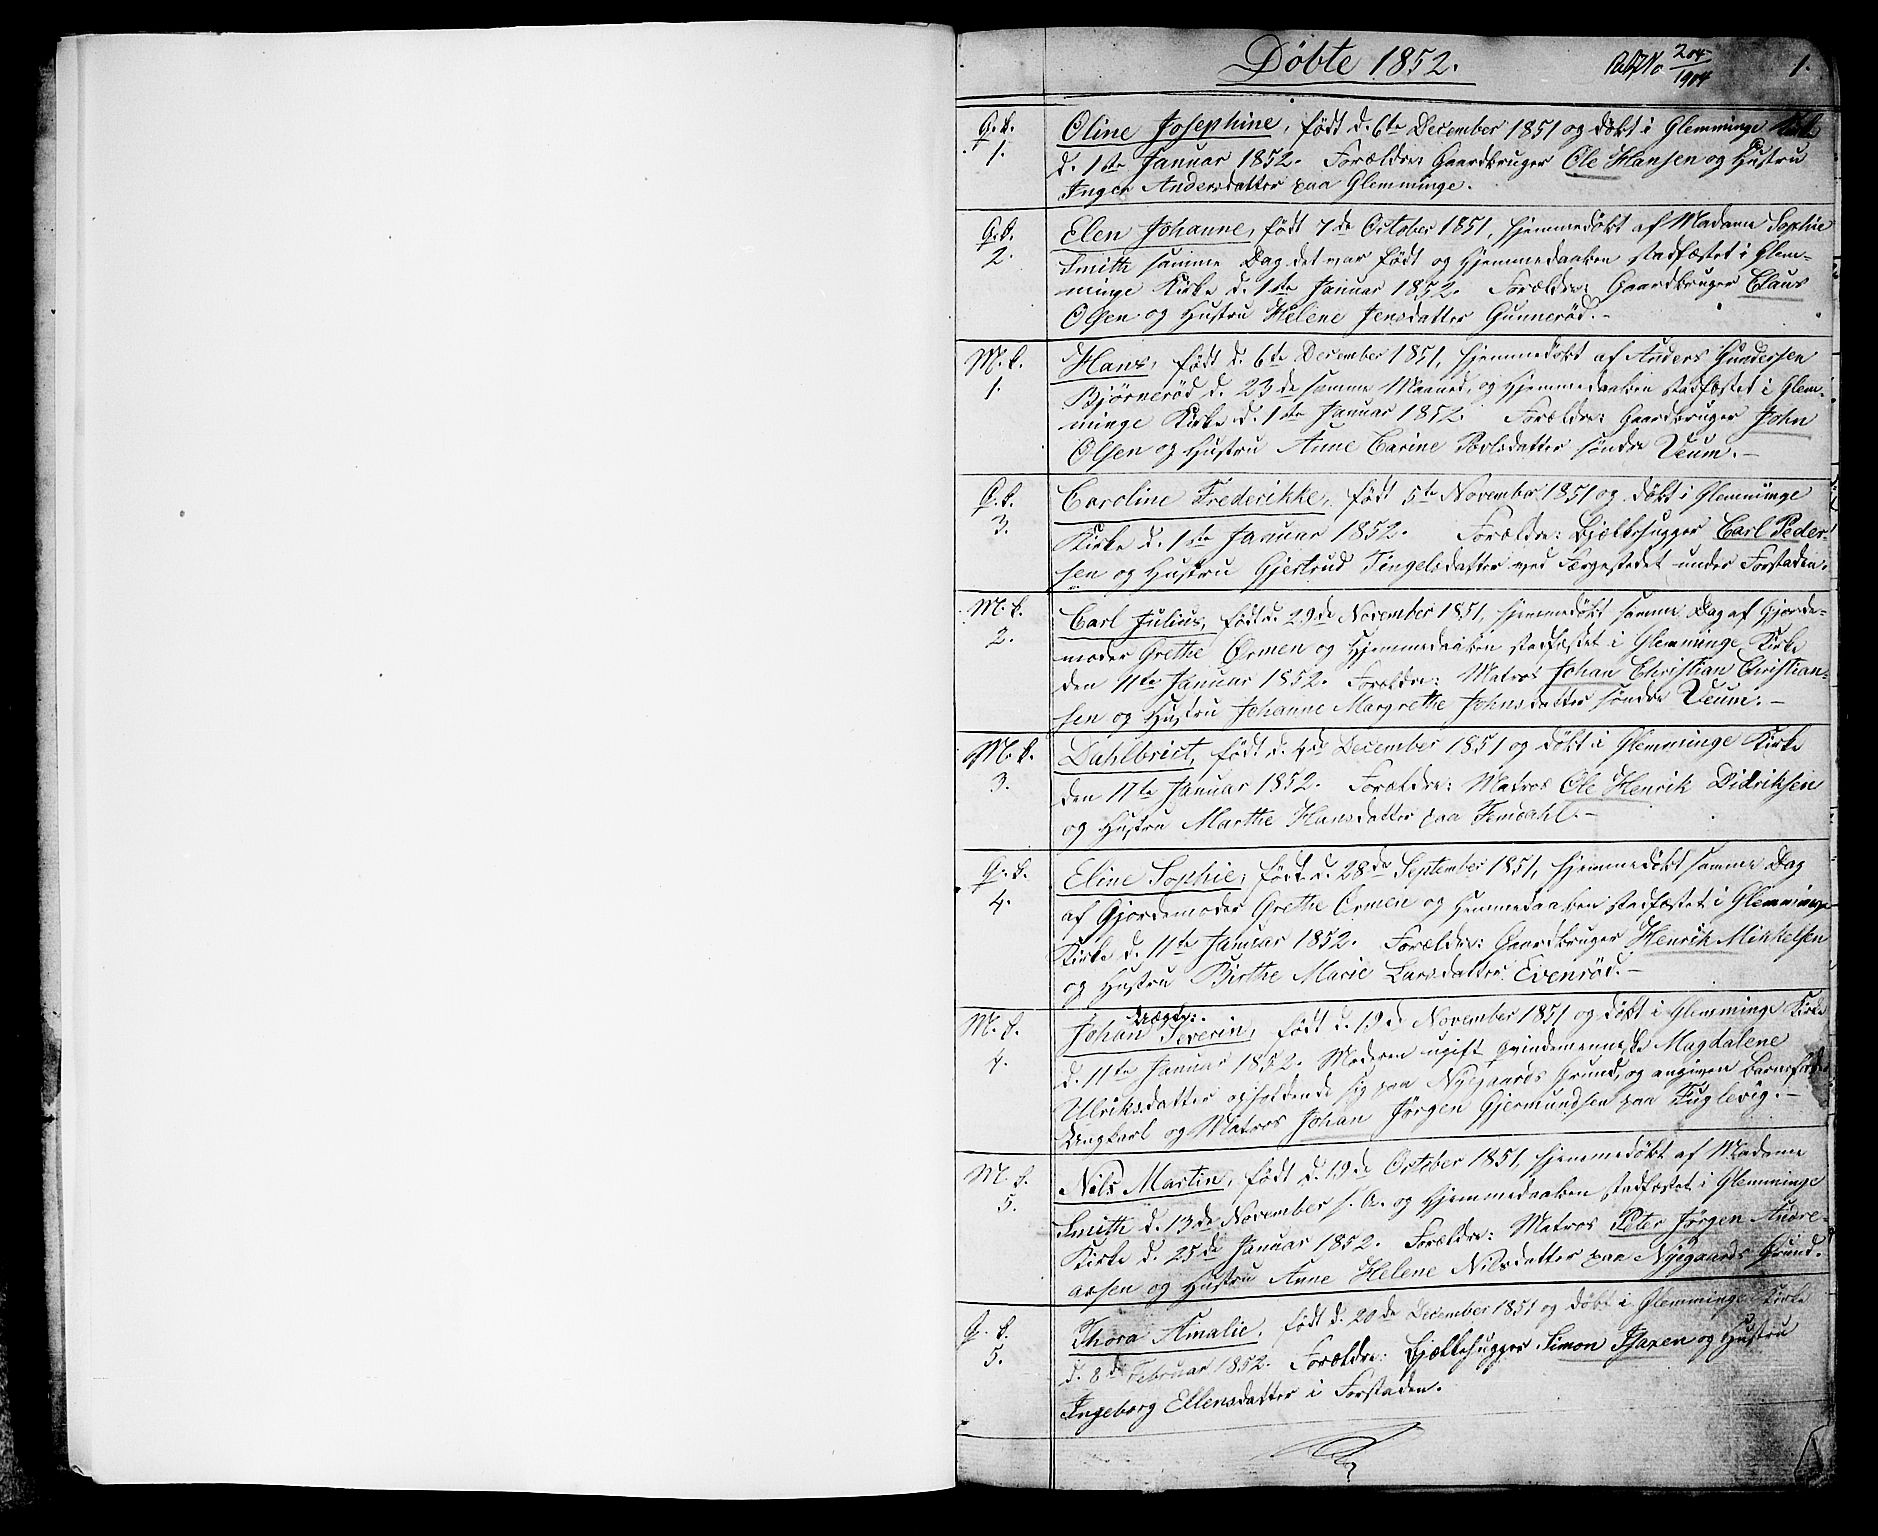 Döbte 1852.
204
1904
1.
Q.k.
1.
Oline Josephine, født d. 6te December 1851 og døbt i Glemminge Kirke
d. 1ste Januar 1852. Forældre: Gaardbruger Ole Hansen og Hustru
Inger Andersdatter paa Glemminge.
Q.k.
2.
Elen Johanne, født 7de October 1851, hjemmedøbt af Madame Sophie
Smith samme Dag det var født og Hjemmedaaben stadfæstet i Glem-
minge Kirke d. 1ste Januar 1852. Forældre: Gaardbruger Claus
Olsen og Hustru Helene Jensdatter Gunnerød.-
M.k.
1.
Hans, født d. 6te December 1851, hjemmedøbt af Anders Gundersen
Bjørnerød d. 23de samme Maaned, og Hjemmedaaben stadfæstet i Glem-
minge Kirke d. 1ste Januar 1852. Forældre: Gaardbruger John
Olsen og Hustru Anne Carine Povlsdatter søndre Veum.-
Q.k.
3.
Caroline Frederikke, født 5te November 1851 og døbt i Glemminge
Kirke d. 1ste Januar 1852. Forældre: Bjelkehugger Carl Peder-
sen og Hustru Gjertrud Tingelsdatter ved Færgestedet under Forstaden.
M.k.
2.
Carl Julius, født d. 29de November 1851, hjemmedøbt samme Dag af Gjorde-
moder Grethe Ørmen og Hjemmedaaben stadfæstet i Glemminge Kirke
den 11te Januar 1852. Forældre: Matros Johan Christian Christian-
sen og Hustru Johanne Margrethe Johnsdatter søndre Veum.-
M.k.
3.
Dahlbrict, født d. 4de December 1851 og døbt i Glemminge Kirke
den 11te Januar 1852. Forældre: Matros Ole Henrik Didriksen
og Hustru Marthe Hansdatter paa Femdahl.-
Q.k.
4.
Eline Sophie, født d. 28de September 1851, hjemmedøbt samme Dag
af Gjordemoder Grethe Ormen og Hemmedaaben stadfæstet i Glemminge
Kirke d. 11te Januar 1852. Forældre: Gaardbruger Henrik Mikkelsen
og Hustru Birthe Marie Larsdatter Evenrød.-
M.k.
4.
Uægte:
Johan Severin, født d. 19de November 1851 og døbt i Glemminge Kirke
d. 11te Januar 1852. Moderen ugift Qvindemenneske Magdalene
Ulriksdatter opholdende sig paa Nyegaards Grund, og angiven Barnefader
Ungkarl og Matros Johan Jørgen Gjermundsen paa Fuglevig.-
M.k.
5.
Nils Martin, født d. 19de October 1851, hjemmedøbt af Madame
Smith d. 13de November s. A. og Hjemmedaaben stadfæstet i Glemminge
Kirke d. 25de Januar 1852. Forældre: Matros Peter Jørgen Andre-
assen og Hustru Anne Helene Nilsdatter paa Nyegaards Grund.
Q.k.
5.
Thora Amalie, født d. 20de December 1851 og døbt i Glemminge Kirke
d. 8de Februar 1852. Forældre: Bjelkehugger Simon Isaxen og Hustru
Ingeborg Ellensdatter i Forstaden.